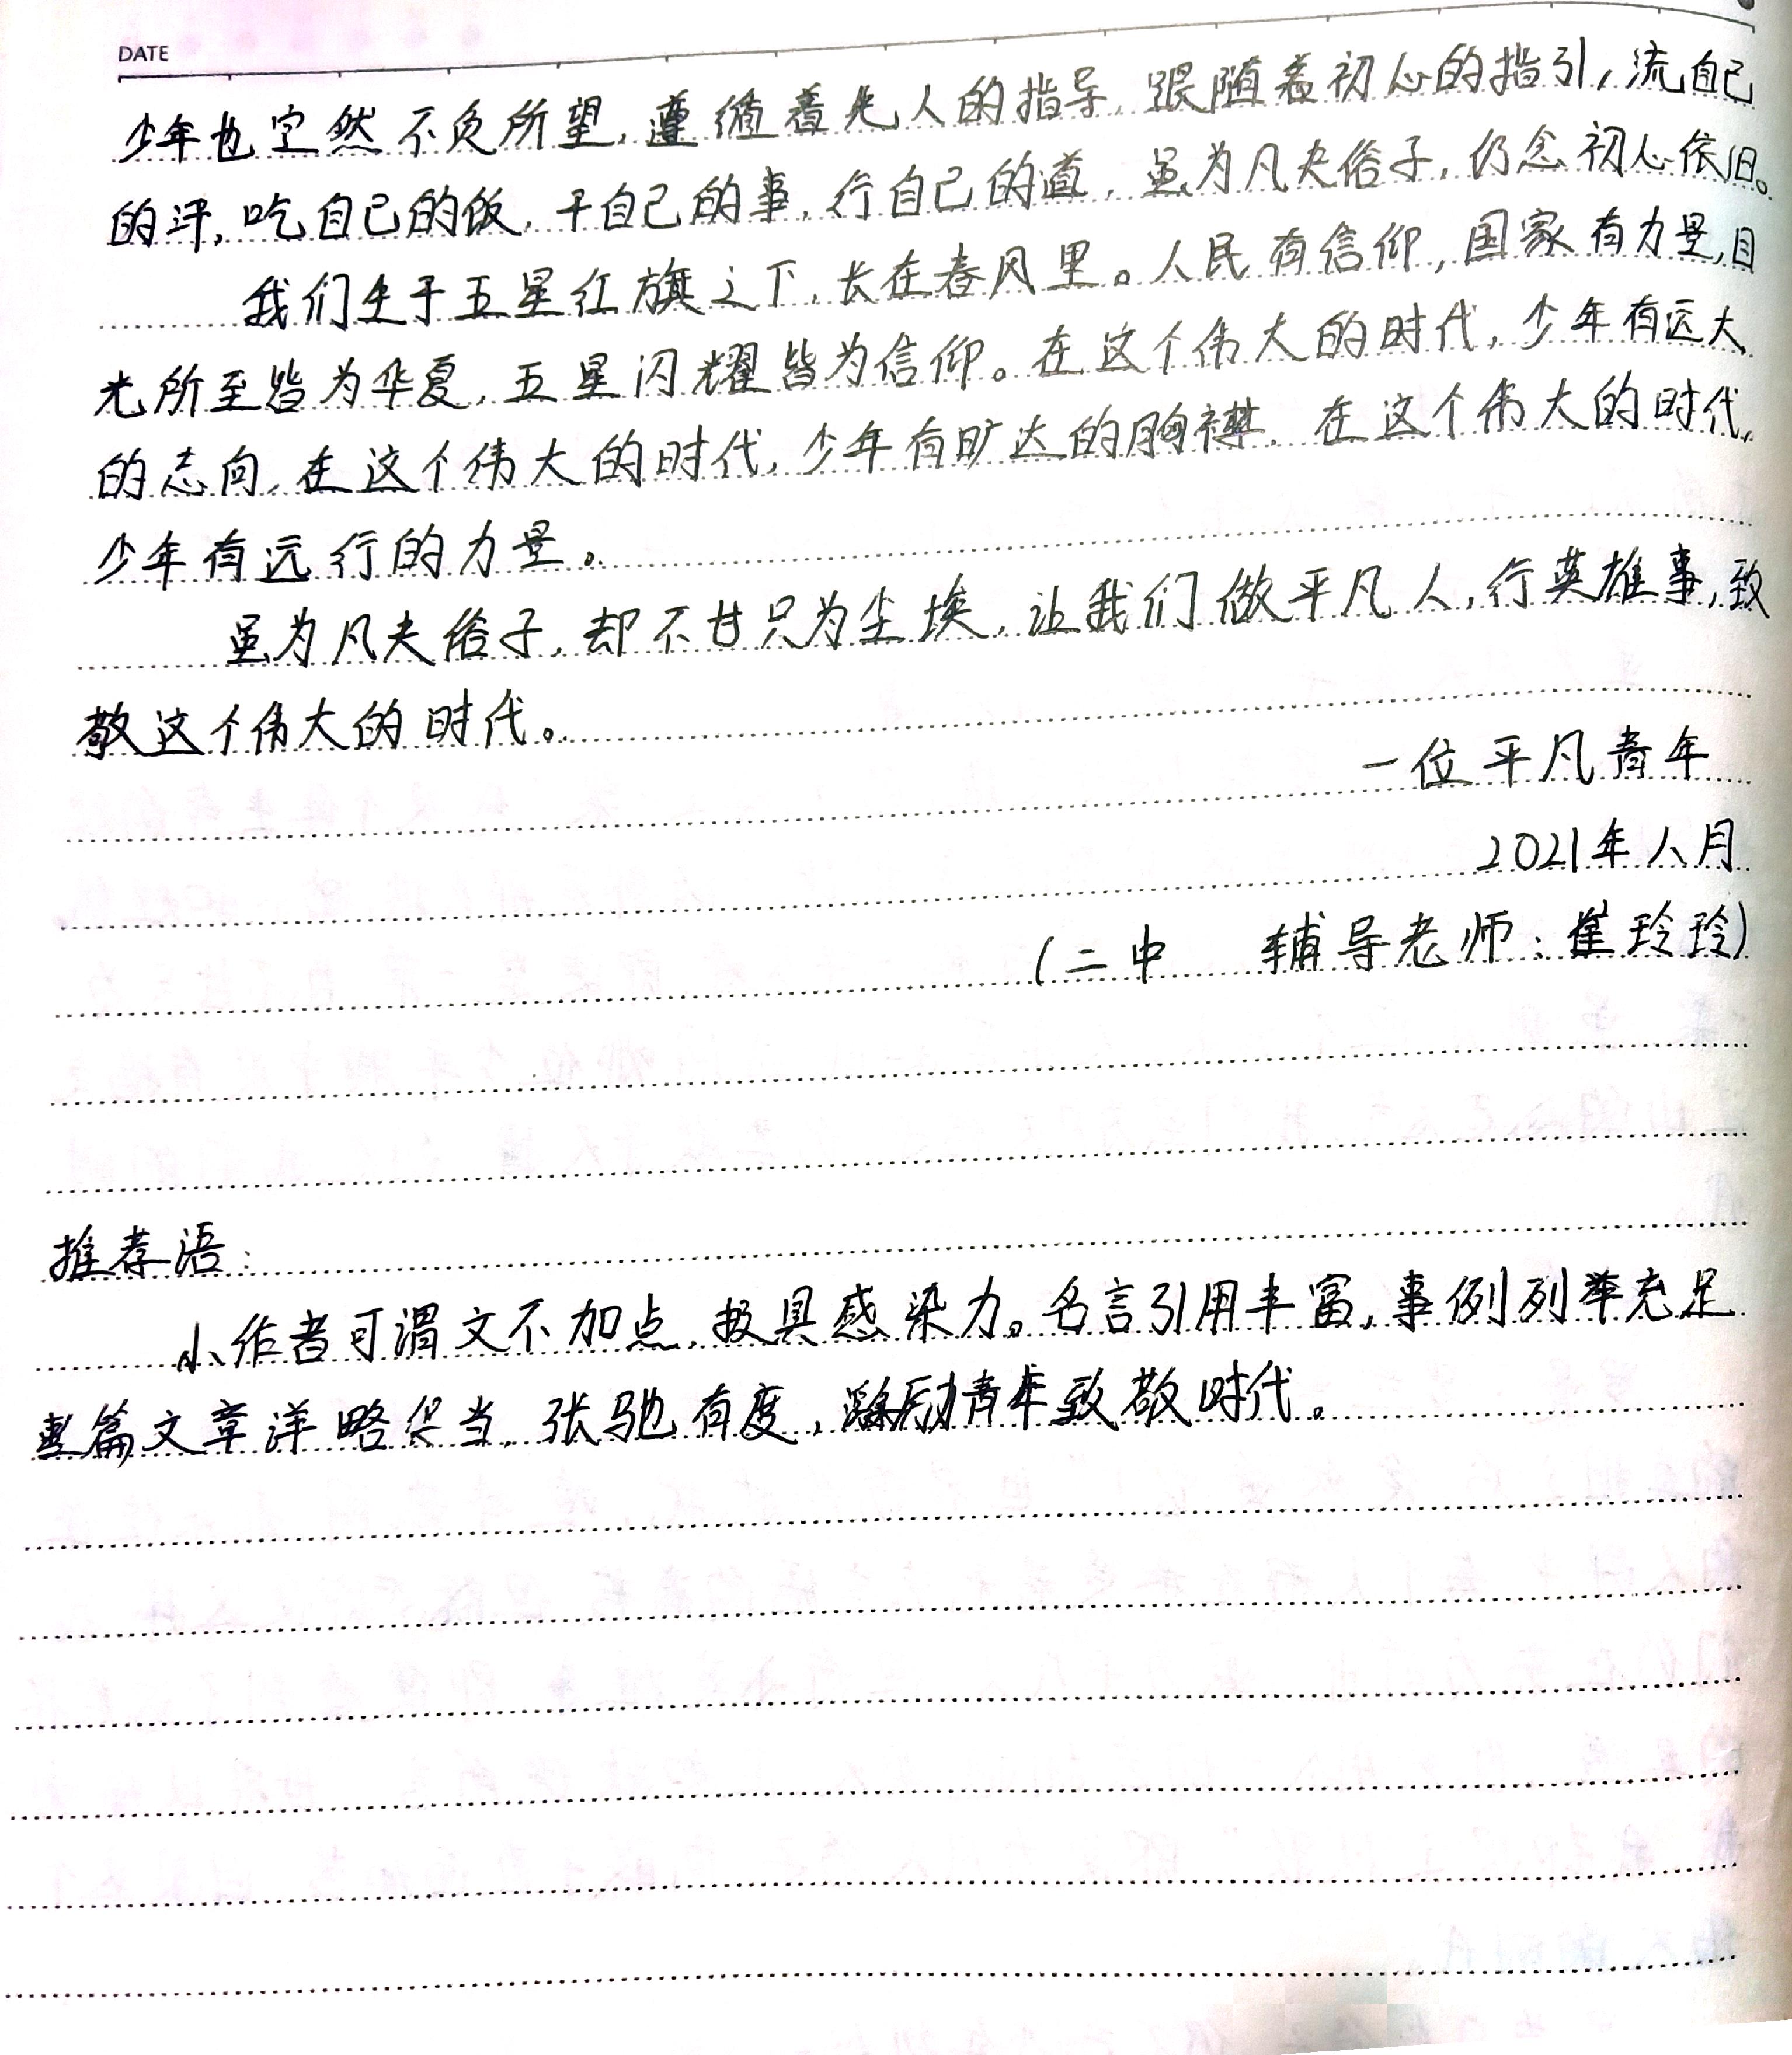 DATE
少年也定然不负所望,遵循着先人的指导,跟随着初心的指引,流自己
的汗,吃自己的饭,干自己的事,行自己的道,虽为凡夫俗子,仍念初心依旧。
我们生于五星红旗之下,长在春风里。人民有信仰,国家有力量,目
光所至皆为华夏,五星闪耀皆为信仰。在这个伟大的时代,少年有远大
的志向,在这个伟大的时代,少年有旷达的胸襟,在这个伟大的时代,
少年有远行的力量。
虽为凡夫俗子,却不甘只为尘埃,让我们做平凡人,行英雄事,致
敬这个伟大的时代。
一位平凡青年
2021年八月
(二中 辅导老师:崔玲玲)
推荐语:
小作者可谓文不加点,极具感染力。名言引用丰富,事例列举充足
整篇文章详略得当,张驰有度,激励青年致敬时代。